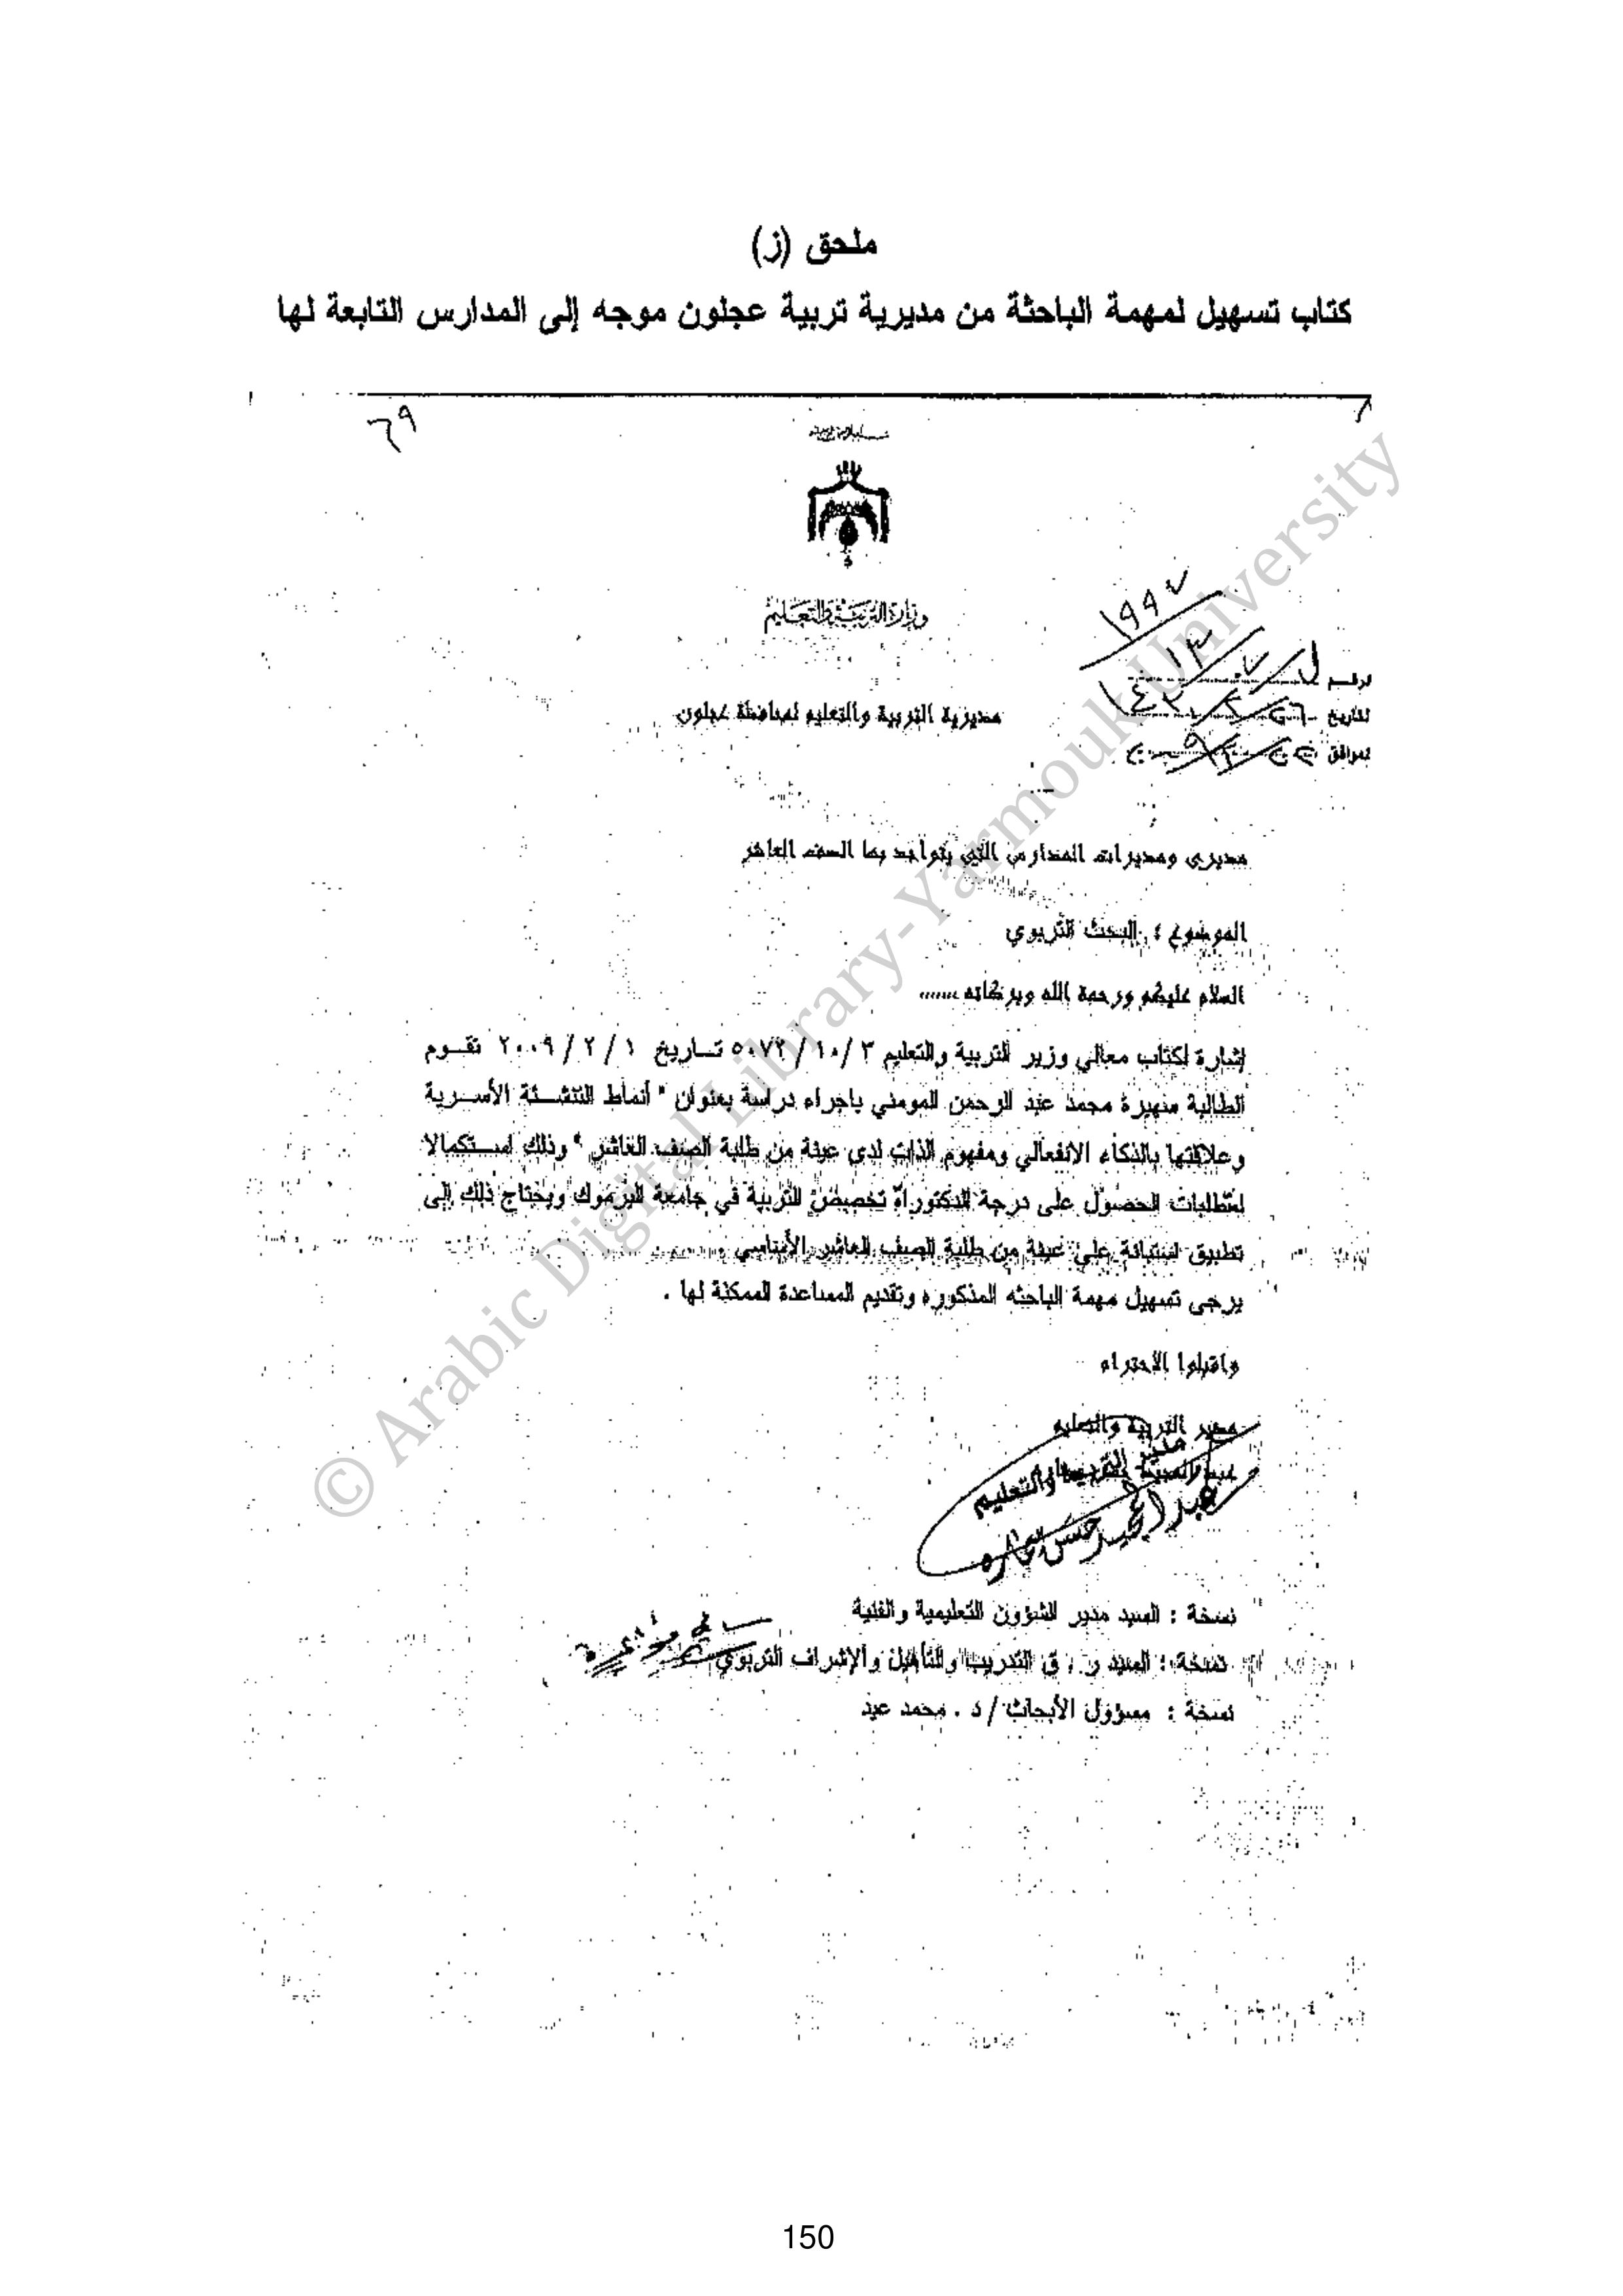 ملحق (ز)
كتاب تسهيل لمهمة الباحثة من مديرية تربية عجلون موجه إلى المدارس التابعة لها
٦٩
وزارة التربية والتعليم
١٩٩٧
الرقم
التاريخ
الموافق
مديرية التربية والتعليم لمحافظة عجلون
مديري ومديرات المدارس التي يتواجد بها الصف العاشر
الموضوع : البحث التربوي
السلام عليكم ورحمة الله وبركاته ......
إشارة لكتاب معالي وزير التربية والتعليم ٣ /١٠ /٥٠٧٢ تـاريخ ١ /٢ /٢٠٠٩ تقـوم
الطالبة محمد عبد الرحمن المومني باجراء دراسة بعنوان " أنماط التنشـئة الأسـرية
وعلاقتها بالذكاء الانفعالي ومفهوم الذات لدى عينة من طلبة الصف العاشر " وذلك استـكمالا
لمتطلبات الحصول على درجة الدكتوراة تخصص التربية في جامعة اليرموك ويحتاج ذلك إلى
تطبيق استبانة على عينة من طلبة الصف العاشر الأساسي
يرجى تسهيل مهمة الباحثه المذكوره وتقديم المساعدة الممكنة لها .
واقبلوا الاحترام
مدير التربية والتعليم
مدير التربية والتعليم
نسخة : السيد مدير الشؤون التعليمية والفنية
نسخة : السيد ر . ق التدريب والتأهيل والإشراف التربوي
نسخة : مسؤول الأبحاث / د . محمد عيد
© Arabic Digital Library-Yarmouk University
150